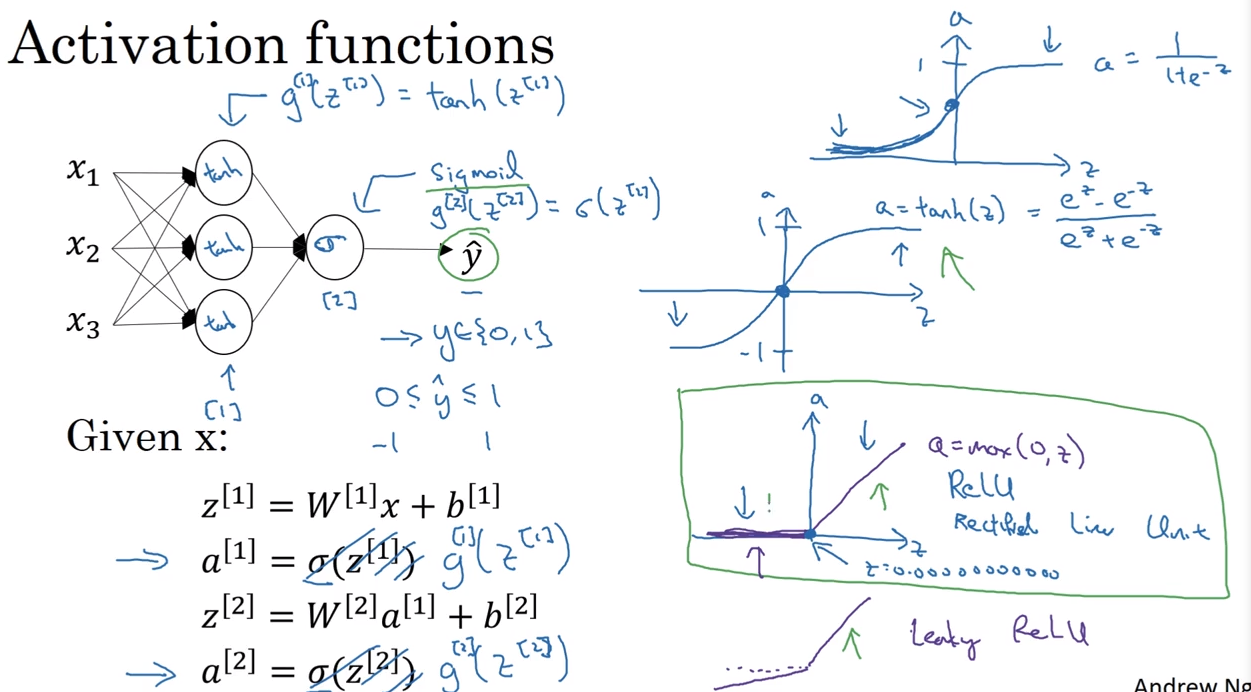 Activation functions
g^[1](z^[1]) = tanh(z^[1])
x₁
x₂
x₃
tanh
tanh
tanh
[1]
σ
[2]
sigmoid
g^[2](z^[2]) = σ(z^[2])
ŷ
→ y∈{0,1}
0 ≤ ŷ ≤ 1
-1 1
Given x:
z^[1] = W^[1]x + b^[1]
→ a^[1] = σ(z^[1]) g^[1](z^[1])
z^[2] = W^[2]a^[1] + b^[2]
→ a^[2] = σ(z^[2]) g^[2](z^[2])
a
1
z
a = 1/(1+e^-z)
a
1
-1
z
a = tanh(z) = (e^z - e^-z)/(e^z + e^-z)
a
z
!
a = max(0,z)
ReLU
Rectified Linear Unit
z=0.00000000000
Leaky ReLU
Andrew Ng